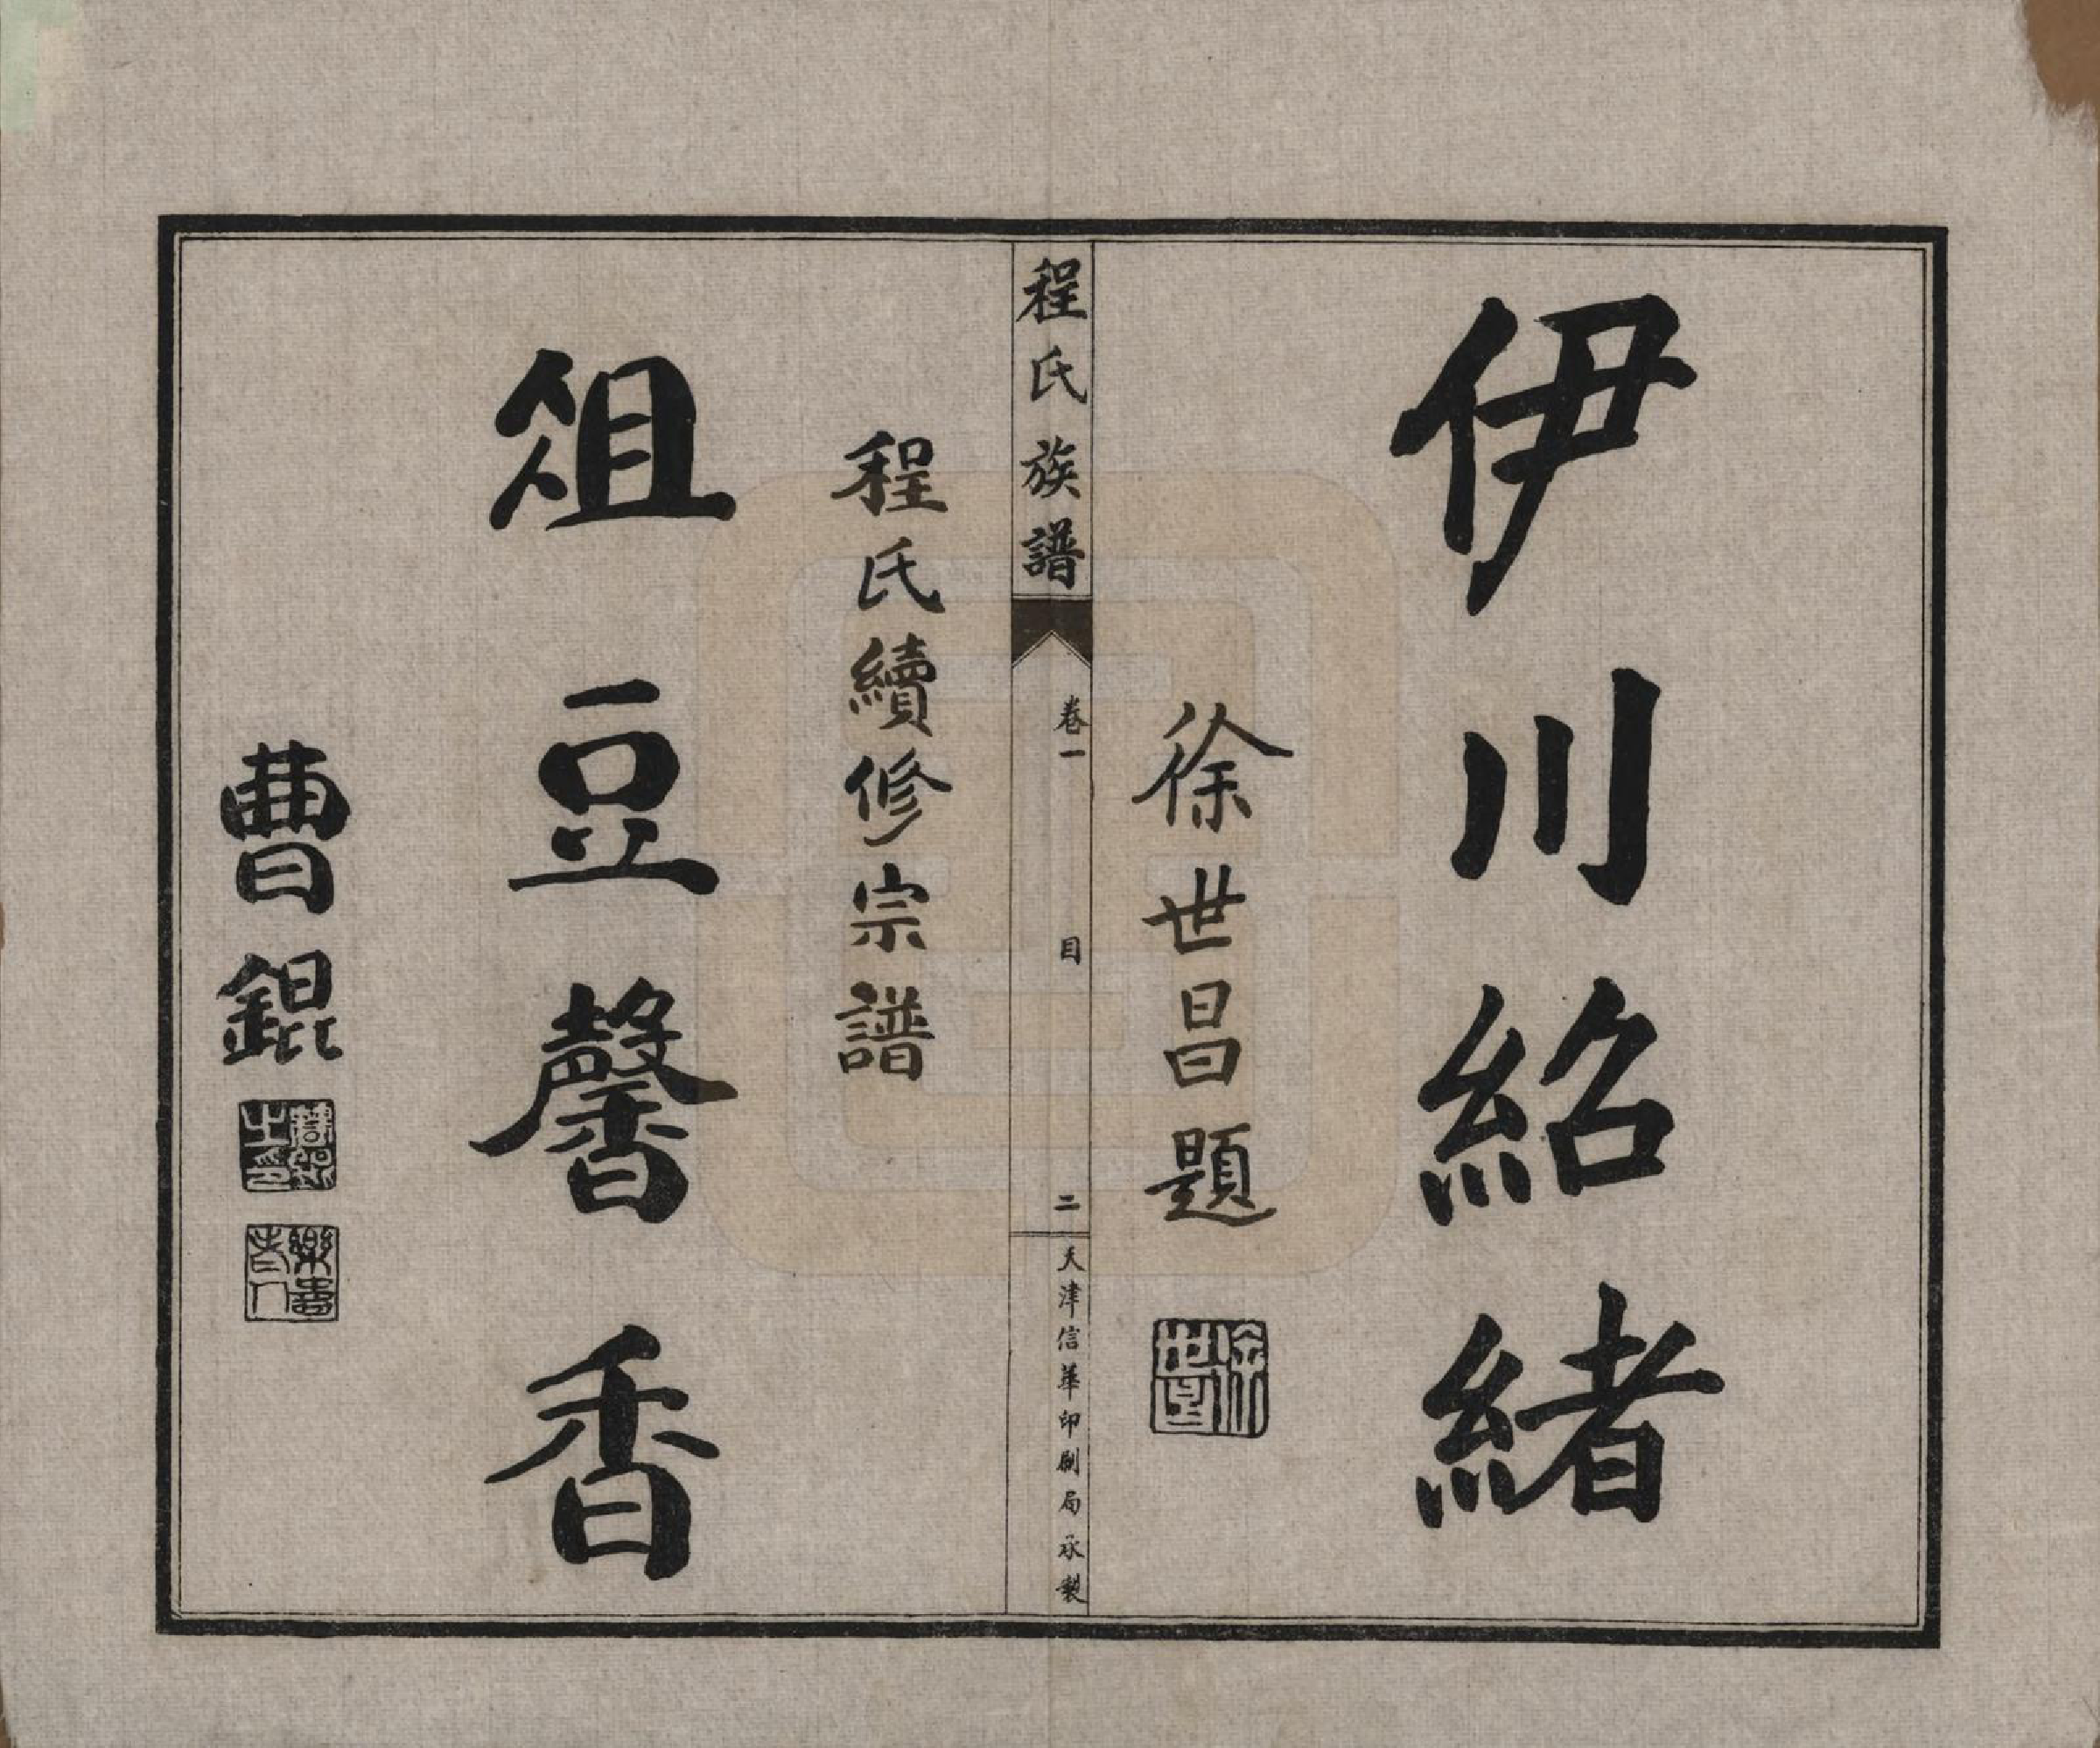 伊川紹緒
徐世昌題
徐世昌
程氏族譜
卷一
目
二
天津信華印刷局承製
程氏續修宗譜
俎豆馨香
曹錕
曹錕之印
樂壽老人